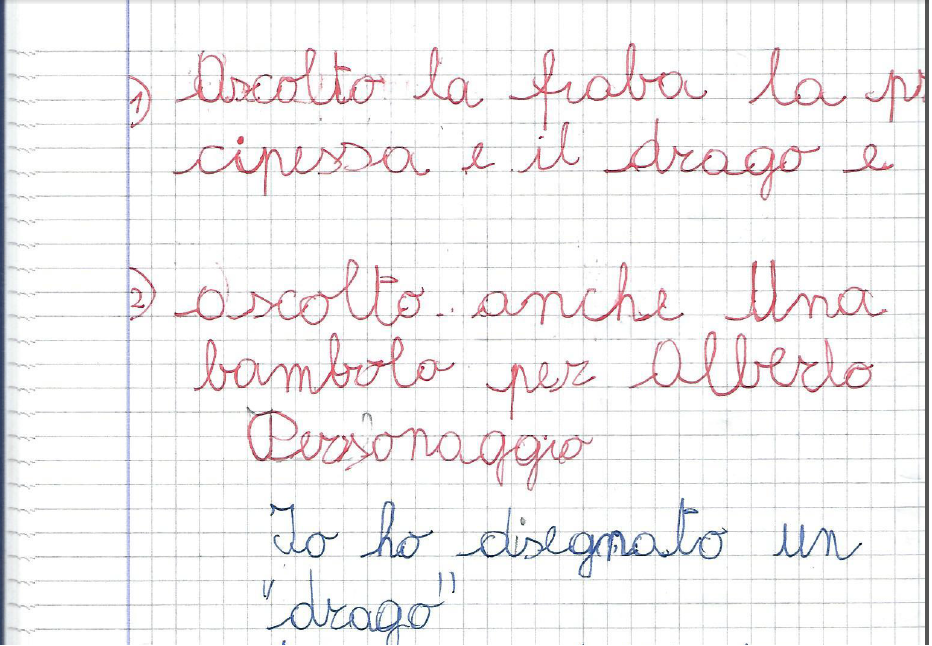 1) Ascolto la fiaba la pr
cipessa e il drago e
2) ascolto anche Una
bambola per Alberto
Personaggio
Io ho disegnato un
"drago"